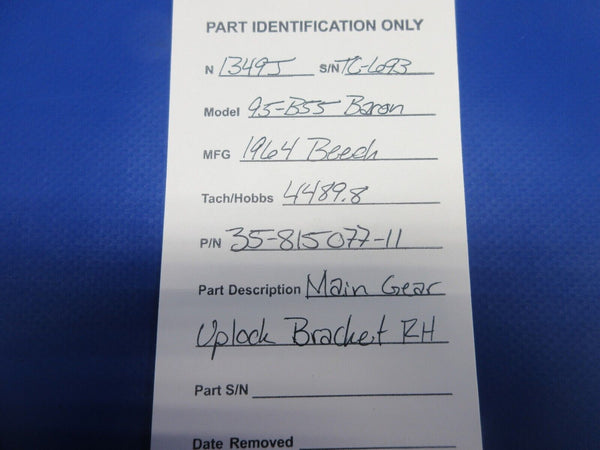 PART IDENTIFICATION ONLY
N 1349J S/N TC-693
Model 95-B55 Baron
MFG 1964 Beech
Tach/Hobbs 4489.8
P/N 35-815077-11
Part Description Main Gear
Uplock Bracket RH
Part S/N
Date Removed